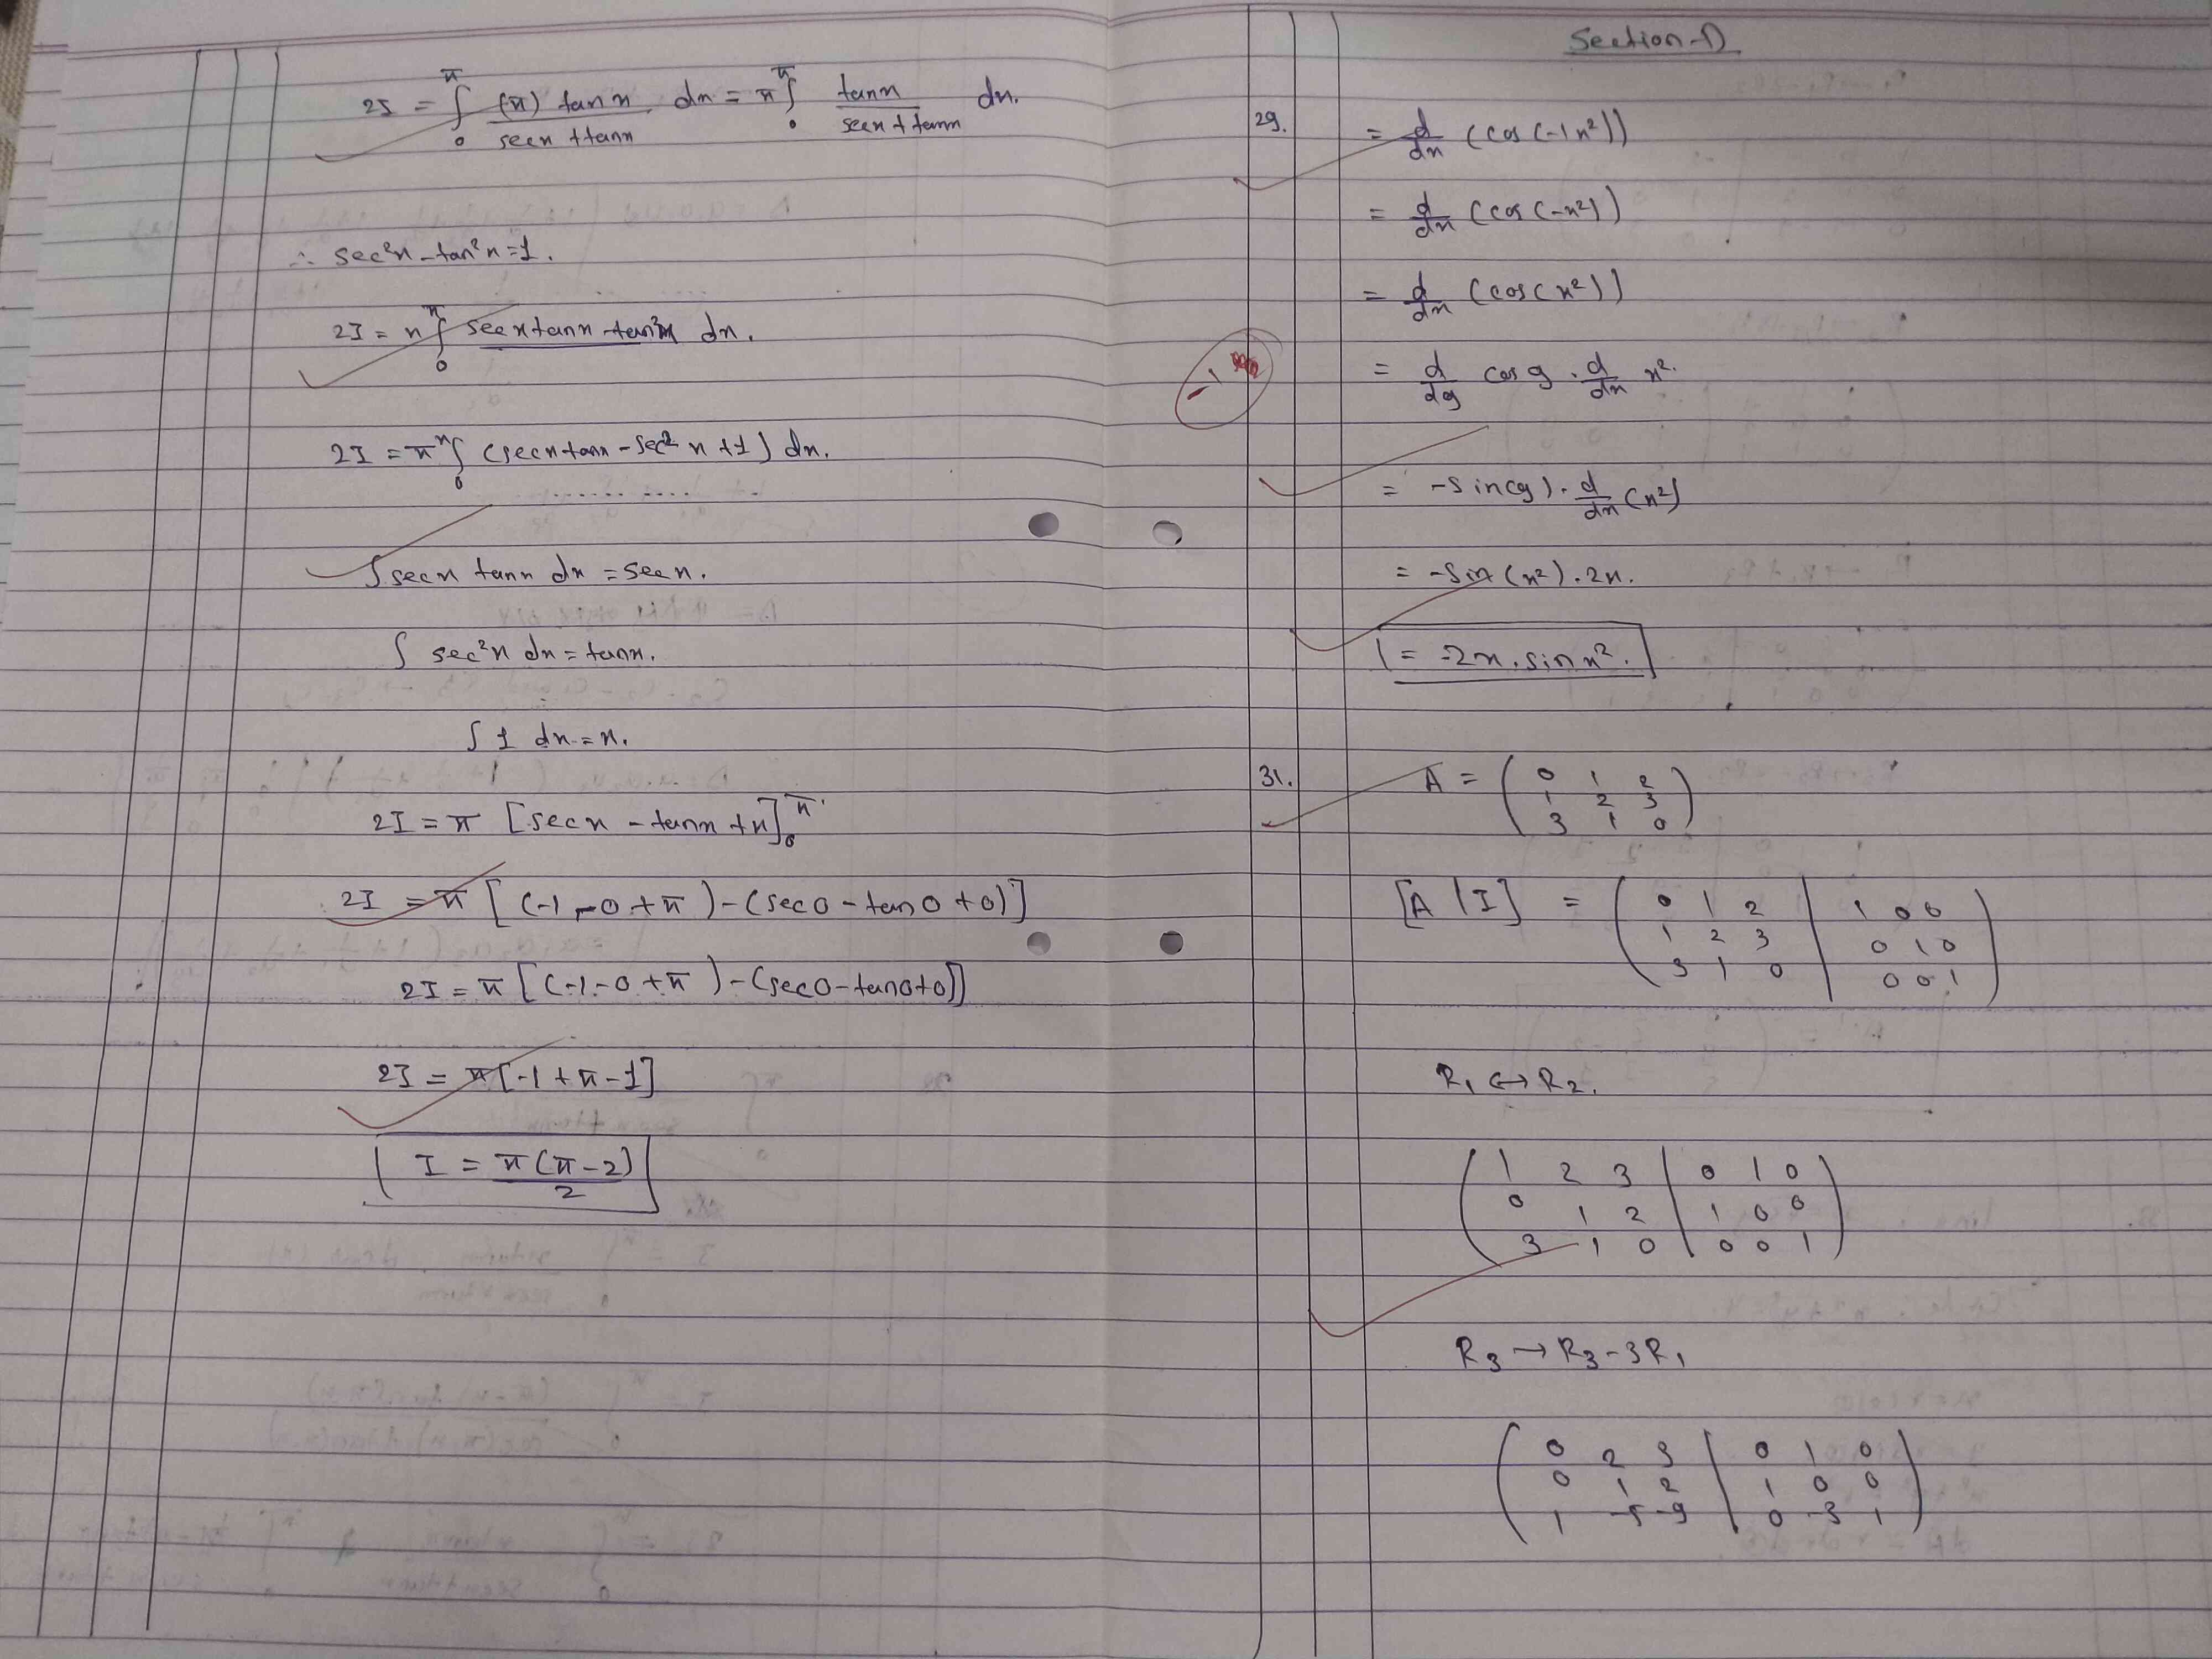 2I = ∫₀^π (π) tan x / sec x + tan x dx = π ∫₀^π tan x / sec x + tan x dx.
∴ sec²x - tan²x = 1.
2I = π ∫₀^π sec x tan x - tan²x dx.
2I = π ∫₀^π (sec x tan x - sec² x + 1) dx.
∫ sec x tan x dx = sec x.
∫ sec²x dx = tan x.
∫ 1 dx = x.
2I = π [sec x - tan x + x]₀^π.
2I = π [(-1 - 0 + π) - (sec 0 - tan 0 + 0)]
2I = π [(-1 - 0 + π) - (sec 0 - tan 0 + 0)]
2I = π [-1 + π - 1]
I = π(π - 2) / 2
Section-D
29. = d/dx (cos (-1x²))
= d/dx (cos (-x²))
= d/dx (cos (x²))
-1
= d/dg cos g . d/dx x².
= -sin(g) . d/dx (x²)
= -sin (x²) . 2x.
= -2x . sin x².
31. A = ( 0 1 2
1 2 3
3 1 0 )
[A | I] = ( 0 1 2 | 1 0 0
1 2 3 | 0 1 0
3 1 0 | 0 0 1 )
R₁ ↔ R₂.
( 1 2 3 | 0 1 0
0 1 2 | 1 0 0
3 1 0 | 0 0 1 )
R₃ → R₃ - 3R₁
( 0 2 3 | 0 1 0
0 1 2 | 1 0 0
1 -5 -9 | 0 -3 1 )